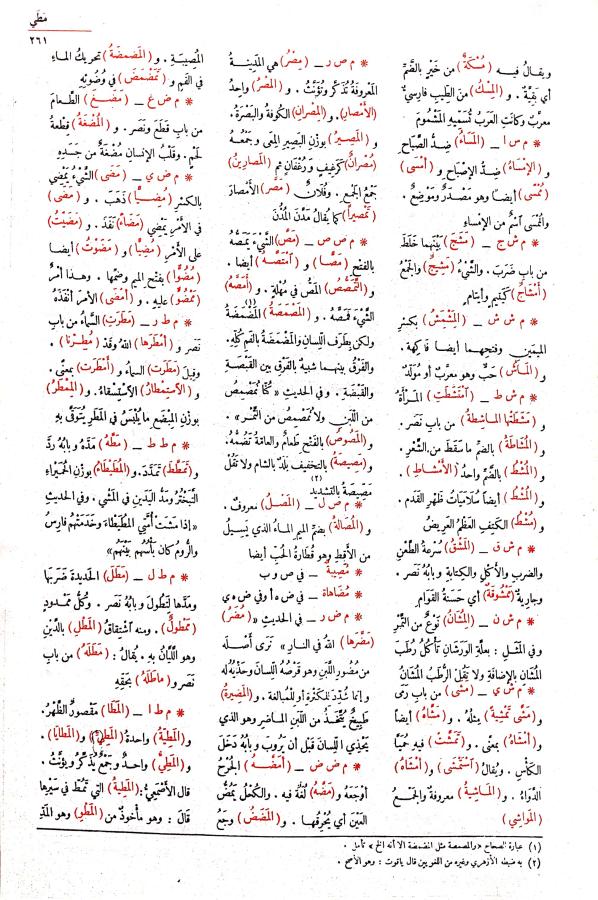 مَطَي
٢٦١
ويقالُ فيه (مُسْكَةٌ) من خَيْرٍ بالضَّمِّ
أي بَقِيَّةٌ. و (المِسْكُ) من الطِّيبِ فارِسِيٌّ
معرَّبٌ وكانَتِ العَرَبُ تُسَمِّيهِ المَشْمُومَ
* م س ا – (المَسَاءُ) ضِدُّ الصَّباحِ
و (الإِمْسَاءُ) ضِدُّ الإِصْباحِ و (أَمْسَى)
(مُمْسًى) أيضًا وهو مَصْدَرٌ ومَوْضِعٌ.
والمُمْسَى آسْمٌ من الإِمْساءِ
* م ش ج – (مَشَجَ) بَيْنَهُما خَلَطَ
من بابِ ضَرَبَ. والشَّيْءُ (مَشِيجٌ) والجَمْعُ
(أَمْشَاجٌ) كَيَتِيمٍ وأَيْتامٍ
* م ش ش – (المِشْمِشُ) بكسرِ
الميمَيْنِ وفتحِهما أيضا فاكِهة.
و (المَاشُ) حَبٌّ وهو معرَّبٌ أو مُوَلَّدٌ
* م ش ط – (آمْتَشَطَتِ) المَرْأَةُ
و (مَشَطَتْها الماشِطةُ) من بابِ نَصَر.
و (المُشَاطَةُ) بالضم ما سَقَط من الشَّعرِ.
و (المُشْطُ) بالضَّمِّ واحدُ (الأَمْشاطِ).
و (المُشْطُ) أيضًا سُلَامَيَاتُ ظَهْرِ القَدَم.
و (مُشْطُ) الكَتِفِ العَظْمُ العَرِيضُ
* م ش ق – (المَشْقُ) سُرْعةُ الطَّعْنِ
والضربِ والأَكْلِ والكِتابةِ وبابُه نَصَر.
وجاريةٌ (مَمْشُوقَةٌ) أي حَسَنةُ القَوَامِ
* م ش ن – (المُشَانُ) نَوْعٌ من التَّمْرِ
وفي المَثَلِ: بعِلَّةِ الوَرَشَانِ تَأْكُلُ رُطَبَ
المُشَانِ بالإِضافةِ ولا تَقُلْ الرُّطَبَ المُشَانَ
* م ش ي – (مَشَى) من بابِ رَمَى
و (مَشَّى تَمْشِيَةً) مِثْلُه. و (مَشَّاهُ) أيضاً
و (أَمْشَاهُ) بمعنًى. و (تَمَشَّتْ) فيه حُمَيَّا
الكَأْسِ. ويُقالُ (آسْتَمْشَى) و (أَمْشَاهُ)
الدَّواءُ. و (المَاشِيَةُ) معروفةٌ والجمعُ
(المَواشِي)
* م ص ر – (مِصْرُ) هي المَدِينةُ
المَعْرُوفةُ تُذَكَّرُ وتُؤَنَّثُ. و (المِصْرُ) واحِدُ
(الأَمْصارِ). و (المِصْرانِ) الكُوفةُ والبَصْرَةُ.
و (المَصِيرُ) بوزنِ البَصيرِ المِعَى وجَمْعُهُ
(مُصْرَانٌ) كَرَغِيفٍ ورُغْفَانٍ ثم (المَصَارِينُ)
جَمْعُ الجَمْعِ. وفُلَانٌ (مَصَّرَ) الأَمْصَارَ
(تَمْصِيراً) كما يُقالُ مَدَّنَ المُدُنَ
* م ص ص – (مَصَّ) الشَّيْءَ يَمَصُّهُ
بالفتحِ (مَصًّا) و (آمْتَصَّهُ) أيضا.
و (التَّمَصُّصُ) المَصُّ في مُهْلةٍ. و (أَمَصَّهُ)
الشَّيْءَ فَمَصَّهُ. و (المَصْمَصَةُ) المَضْمَضَةُ (١)
ولكن بطَرَفِ اللِّسانِ والمَضْمَضَةُ بالفَمِ كُلِّهِ.
والفَرْقُ بينهما شبيهٌ بالفَرْقِ بين القَبْصَةِ
والقَبْضَةِ. وفي الحديثِ «كُنَّا نُمَصْمِصُ
من اللَّبَنِ ولا نُمَصْمِصُ من التَّمْرِ».
و (المَصُوصُ) بالفتحِ طَعامٌ والعامّةُ تَضُمُّهُ.
و (مَصِيصَةُ) بالتخفيفِ بلدٌ بالشامِ ولا تَقُلْ
مِصِّيصَة بالتشديد (٢)
* م ص ل – (المَصْلُ) معروفٌ.
و (المُصَالَةُ) بضمِّ الميمِ الماءُ الذي يَسِيلُ
من الأَقِطِ وهو قُطَارَةُ الحُبِّ أيضا
* مُصِيبَةٌ – في ص و ب
* مُضَاهَاة – في ض ه أ وفي ض ه ي
* م ض ر – في الحديثِ «(مُضَرُ)
(مَضَّرَها) اللهُ في النارِ» نَرَى أَصْلَه
من مُضُورِ اللَّبَنِ وهو قَرْصُهُ اللِّسانَ وحَذْيُه له
وإنما شُدِّدَ للكَثْرَةِ أو للمُبالغةِ. و (المَضِيرَةُ)
طَبِيخٌ يُتَّخَذُ من اللَّبَنِ الماضِرِ وهو الذي
يَحْذِي اللِّسانَ قَبْلَ أن يَرُوبَ وبابُه دَخَلَ
* م ض ض – (أَمَضَّهُ) الجُرْحُ
أَوْجَعَهُ و (مَضَّهُ) لُغَةٌ فيه. والكُحْلُ يَمُضُّ
العَيْنَ أي يُحْرِقُها. و (المَضَضُ) وَجَعُ
المُصِيبَةِ. و (المَضْمَضَةُ) تَحْرِيكُ الماءِ
في الفَمِ و (تَمَضْمَضَ) في وُضُوئِهِ
* م ض غ – (مَضَغَ) الطَّعامَ
من بابِ قَطَع ونَصَر. و (المُضْغَةُ) قِطْعةُ
لَحْمٍ. وقَلْبُ الإنسانِ مُضْغَةٌ من جَسَدِهِ
* م ض ي – (مَضَى) الشَّيْءُ يَمْضِي
بالكسْرِ (مُضِيًّا) ذَهَبَ. و (مَضَى)
في الأَمْرِ يَمْضِي (مَضَاءً) نَفَذَ. و (مَضَيْتُ)
على الأَمْرِ (مُضِيًّا) و (مَضَوْتُ) أيضا
(مُضُوًّا) بفتحِ الميمِ وضَمِّها. وهذا أَمْرٌ
(مَمْضُوٌّ) عليه. و (أَمْضَى) الأمرَ أَنْفَذَهُ
* م ط ر – (مَطَرَتِ) السَّماءُ من بابِ
نَصَر و (أَمْطَرَها) اللهُ وقَدْ (مُطِرْنا).
وقيلَ (مَطَرَتِ) السماءُ و (أَمْطَرَتْ) بمعنًى.
و (الآسْتِمْطارُ) الآسْتِسْقاءُ. و (المِمْطَرُ)
بوزنِ المِبْضَعِ ما يُلْبَسُ في المَطَرِ يُتَوَقَّى بِهِ
* م ط ط – (مَطَّهُ) مَدَّهُ وبابُه رَدَّ
و (تَمَطَّطَ) تَمَدَّدَ. و (المُطَيْطَاءُ) بوزنِ الحُمَيْراءِ
التَّبَخْتُرُ ومَدُّ اليَدَيْنِ في المَشْيِ. وفي الحديثِ
«إذا مَشَتْ أُمَّتِي المُطَيْطَاءَ وخَدَمَتْهُم فارِسُ
والرُّومُ كان بَأْسُهُم بَيْنَهُمْ»
* م ط ل – (مَطَلَ) الحَدِيدةَ ضَرَبَها
ومَدَّها لِتَطُولَ وبابُه نَصَر. وكُلُّ مَمْدُودٍ
(مَمْطُولٌ). ومنه آشْتِقاقُ (المَطْلِ) بالدَّيْنِ
وهو اللَّيَّانُ بِهِ. يُقالُ: (مَطَلَهُ) من بابِ
نَصَر و (ماطَلَهُ) بحَقِّهِ
* م ط ا – (المَطَا) مَقْصُورٌ الظَّهْرُ.
و (المَطِيَّةُ) واحدةُ (المَطِيِّ) و (المَطايَا).
و (المَطِيُّ) واحدٌ وجَمْعٌ يُذَكَّرُ ويُؤَنَّثُ.
قال الأَصْمَعِيُّ: (المَطِيَّةُ) التي تَمُطُّ في سَيْرِها
قال: وهو مأخوذٌ من (المَطْوِ) وهو المَدُّ
(١) عبارة الصحاح «والمصمصة مثل المضمضة الا أنه الخ» تأمل.
(٢) به ضبطه الأزهري وغيره من اللغويين قال ياقوت: وهو الأصح.